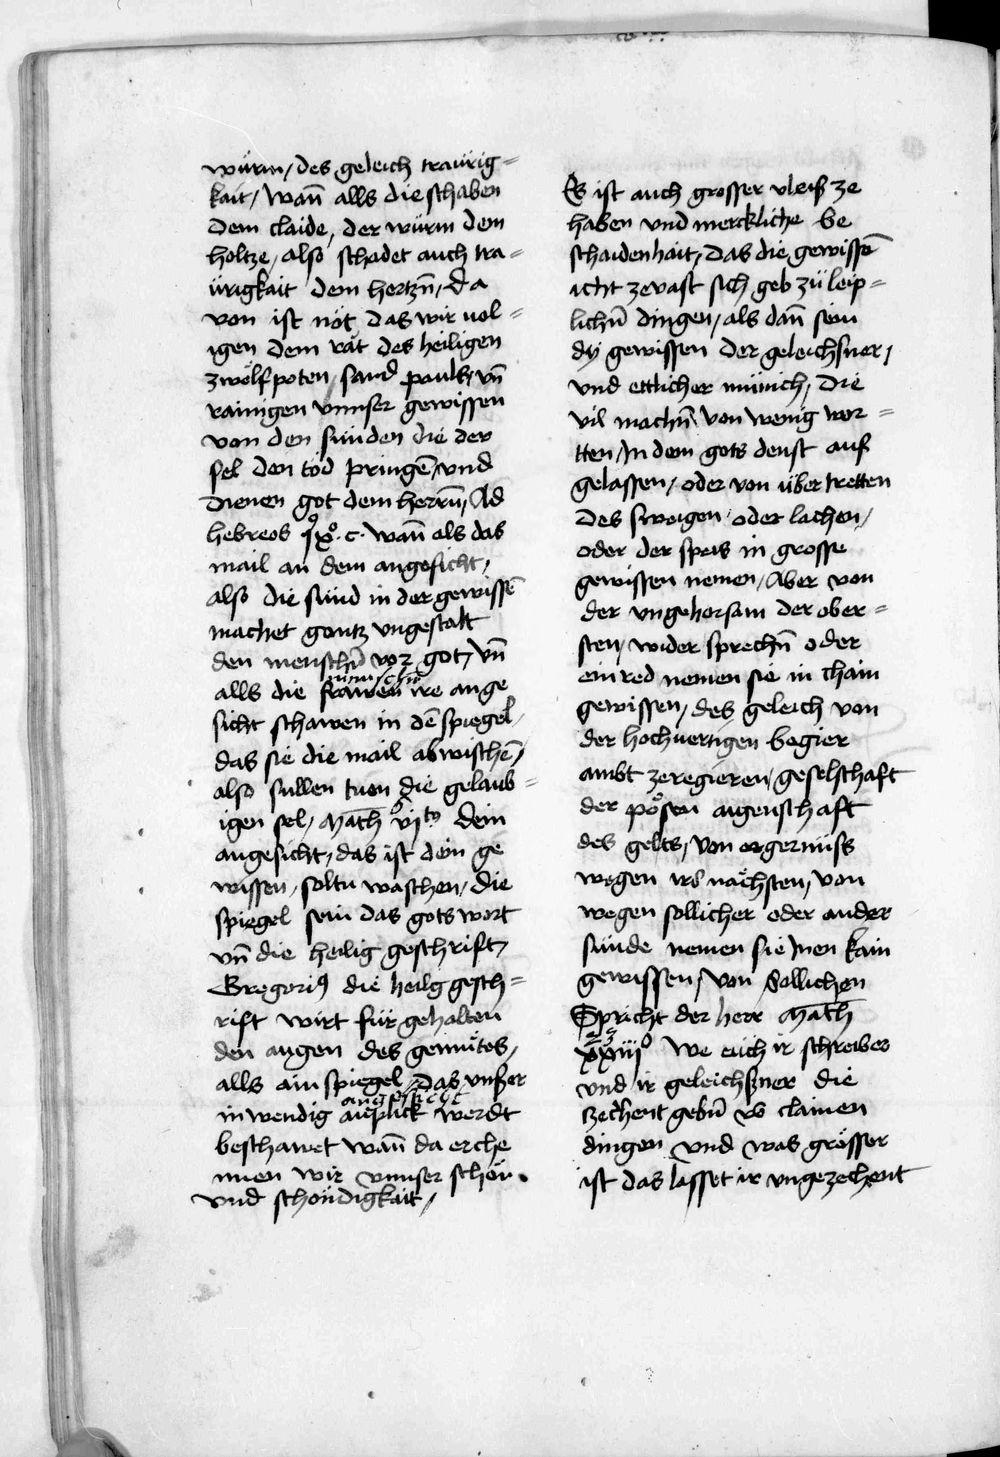 würm / des geleich traürig=
kait / Wan̄ alls die schaben
dem claide / der würm dem
holtze / also schadet auch tra=
ürigkait dem hertzn̄ / da
von ist nöt das wir uol=
igen dem rat des heiligen
zwelfpoten / sand pauls / vn̄
rainigen vnnser gewissen
von den sünden die der
sel den tod pringē / vnd
dienen got dem herrn̄ / Ad
hebreos ix°. c. wan̄ als das
mail an dem angesicht /
also die sünd in der gewissē
machet gantz vngestalt
den menschn̄ vor got / vn̄
alls die frawen ire ange
sicht schawen in dē spiegel /
das sie die mail abwischē /
also sullen tuen die gelaub=
igen sel / Math° vito dein
angesicht / das ist dein ge
wissen / soltu waschen / die
spiegel sein das gots wort
vn̄ die heilig geschrift /
Gregori9 die heilg gesch=
rift wirt für gehalten
den augen des gemütes /
alls ain spiegel / Das vnser
angesicht
inwendig aieplick werdt
beschawet wan̄ da erche
nnen wir vnnser schön.
vnd schöndigkait /
Es ist auch grosser vleiß ze
haben vnd merckliche be
schaidenhait / das die gewissē
icht zevast sich geb zü leip=
lichn̄ dingen / als dan̄ sein
dy gewissen der geleichsner /
vnd ettlicher münich / die
vil machn̄ von wenig wor=
tten / In dem gots denst auß
gelassen / oder von übertretten
des sweigen / oder lachen /
oder der speis in grosse
gewissen nemen / Aber von
der vngehorsam der ober=
sten / wider sprechn̄ oder
einred nemen sie in chain
gewissen / des geleich von
der hochuertigen begier
ambt zeregieren / geselschaft
der pösen aigenschaft
des gelts / von ergernüss
wegen irs nächsten / von
wegen sollicher oder ander
sünde nemen sie Inen kain
gewissen / Von Sollichen
Spricht der herr Math
xxiij° We euch ir schreiber
vnd ir geleichßner die
zechent gebn̄ vō clainen
dingen vnd was grösser
ist das lasset ir vngezechent